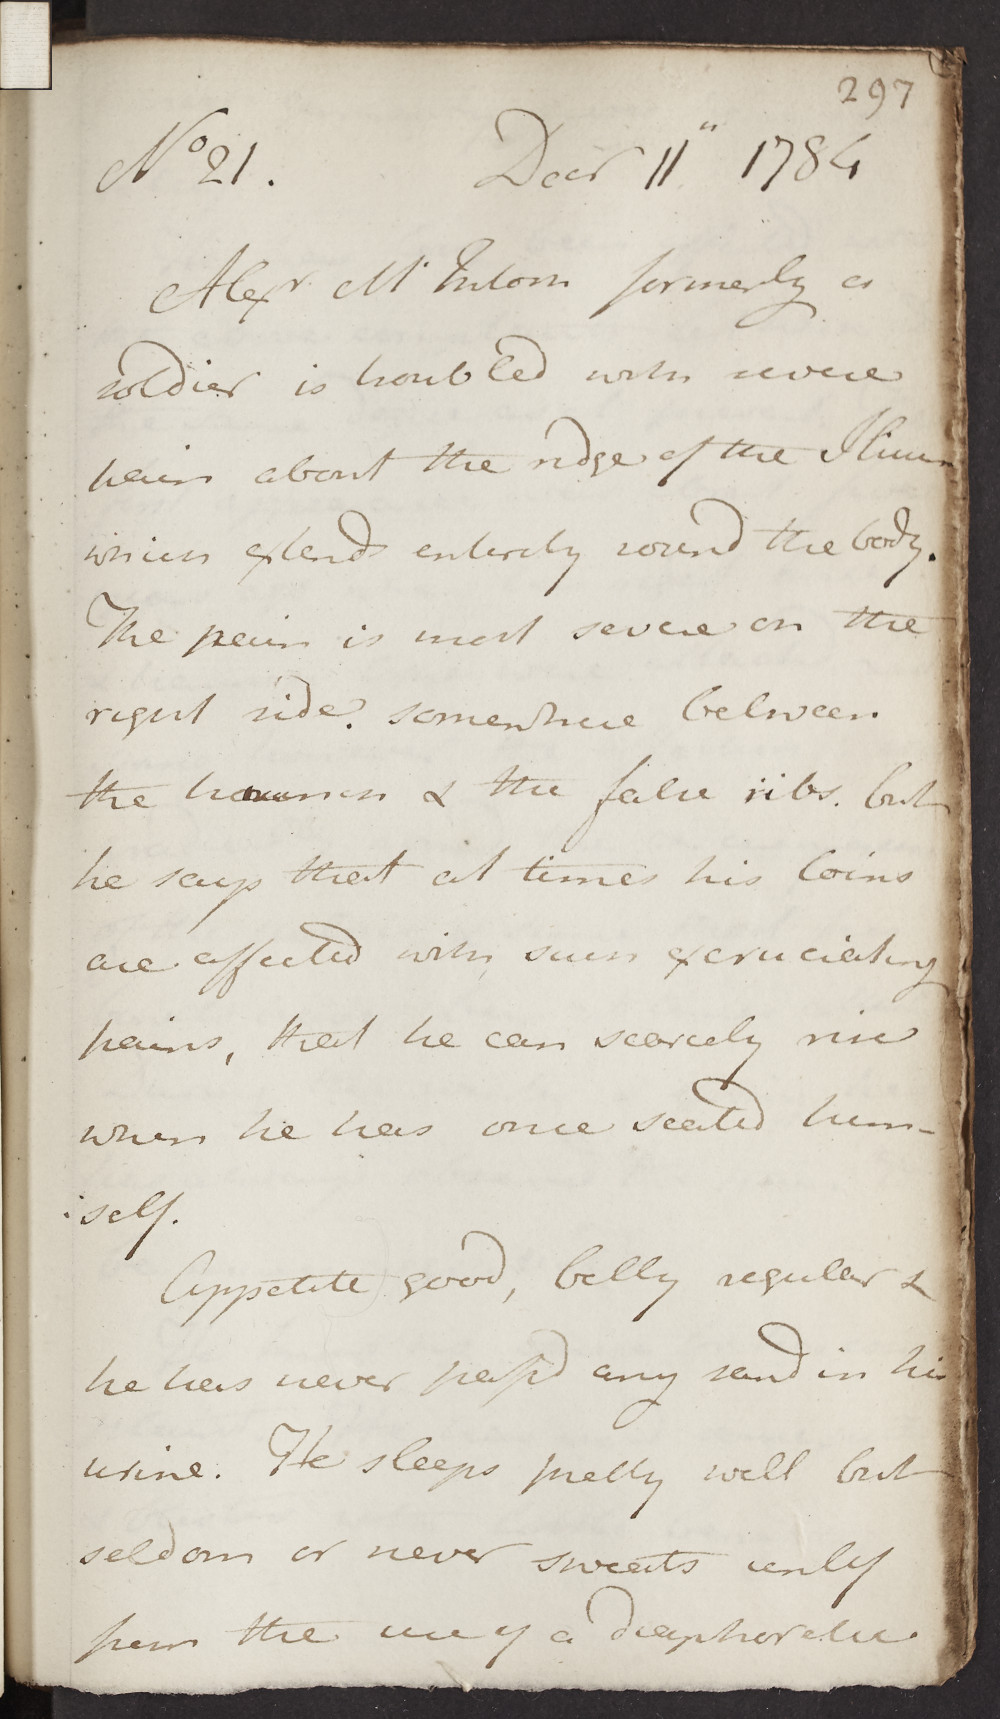 297
No 21. Decr 11" 1784
Alexr Mc Intosh formerly a
soldier is troubled with severe
pain about the ridge of the Ilium
which extends entirely round the body.
The pain is most severe on the
right side. somewhere between
the haunch & the false ribs. but
he says that at times his loins
are affected with such excruciating
pains, that he can scarcely rise
when he has once seated him-
self.
Appetite good, belly regular &
he has never passd any sand in his
urine. He sleeps pretty well but
seldom or never sweats unless
from the use of a diaphoretic